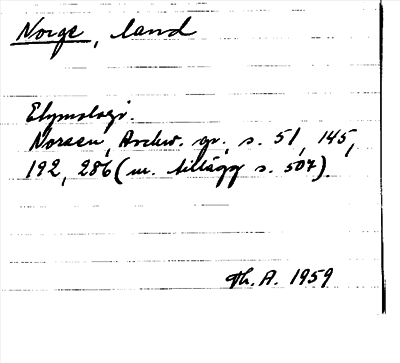 Norge, land
Etymologi.
Noreen, Archiv. gr. s. 51, 145,
192, 286 (m. tillägg s. 507).
Th. A. 1959